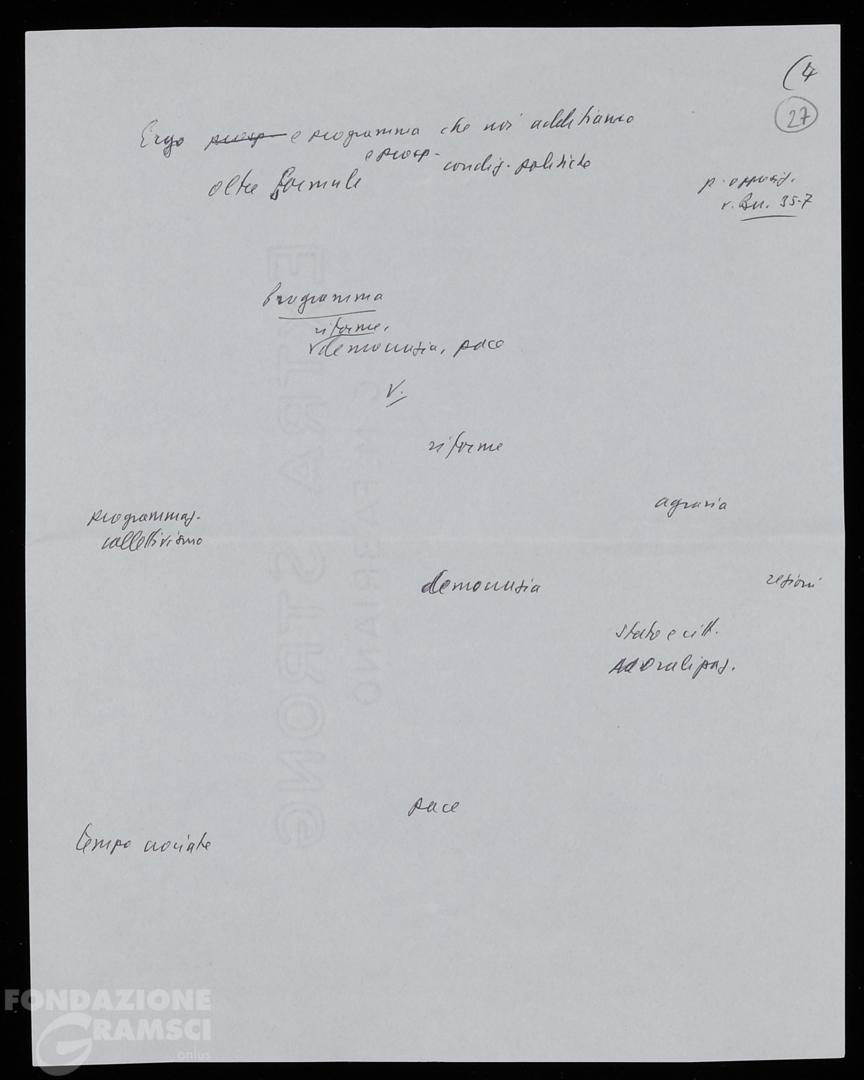 (4
27
Ergo prosp e programma che noi additiamo
e prosp. condiz. politiche
oltre formule
p. opposiz.
v. 35-7
Programma
riforme,
democrazia, pace
V.
riforme
agraria
programmaz.
collettivismo
democrazia
regioni
Stato e citt.
pace
tempo
EXTRA STRONG
FABRIANO
FONDAZIONE
GRAMSCI
onlus